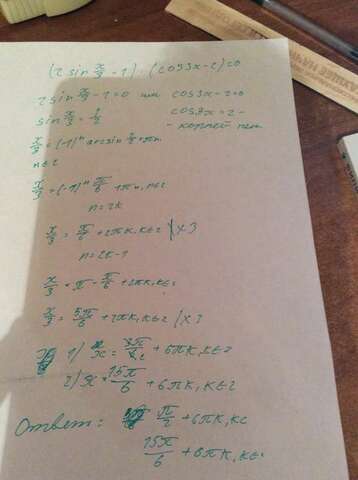 (2 sin x/3 - 1) · (cos3x - 2) = 0
2 sin x/3 - 1 = 0 или cos3x - 2 = 0
sin x/3 = 1/2 cos3x = 2 -
- корней нет
x/3 = (-1)ⁿ arcsin 1/2 + πn
n∈Z
x/3 = (-1)ⁿ π/6 + πn, n∈Z
n = 2k
x/3 = π/6 + 2πk, k∈Z | ×3
n = 2k-1
x/3 = π - π/6 + 2πk, k∈Z
x/3 = 5π/6 + 2πk, k∈Z | ×3
1) x = + 6πk, k∈Z
2) x = 15π/6 + 6πk, k∈Z
Ответ: π/2 + 6πk, k∈
15π/6 + 6πk, k∈